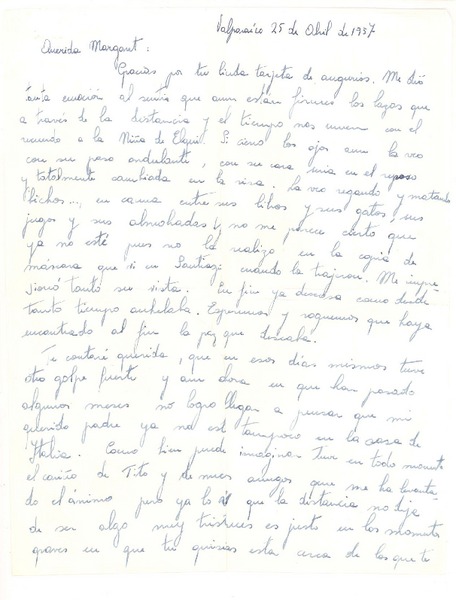 Valparaíso 25 de Abril de 1957
Querida Margaret:
Gracias por tu linda tarjeta de augurios. Me dió
tanta emoción al sentir que aun estan firmes los lazos que
a través de la distancia y el tiempo nos unen con el
recuerdo a la Niña de Elqui. Si cierro los ojos aun la veo
con su paso ondulante, con su cara seria en el reposo
y totalmente cambiada en la risa. La veo regando y matando
bichos..., en cama entre sus libros y sus gatos, sus
jugos y sus almohadas y no me parece cierto que
ya no esté pues no la realizo en la copia de
máscara que vi en Santiago cuando la trajeron. Me impre
sionó tanto su vista. En fin ya descansa como desde
tanto tiempo anhelaba. Esperemos y roguemos que haya
encontrado al fin la paz que deseaba.
Te contaré querida, que en esos días mismos tuve
otro golpe fuerte y aun ahora en que han pasado
algunos meses no logro llegar a pensar que mi
querido padre ya no est tampoco en la casa de
Italia. Como bien puede imaginar tuve en todo momento
el cariño de Tito y de mis amigos que me ha levanta-
do el ánimo pero ya lo que la distancia no deja
de ser algo muy triste es justo en los momentos
graves en que tu quisieras estar cerca de los que te